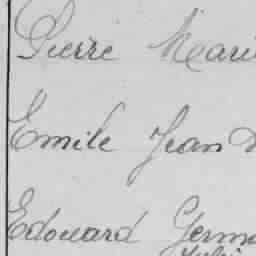 Pierre Mari
Emile Jean
Edouard Germ